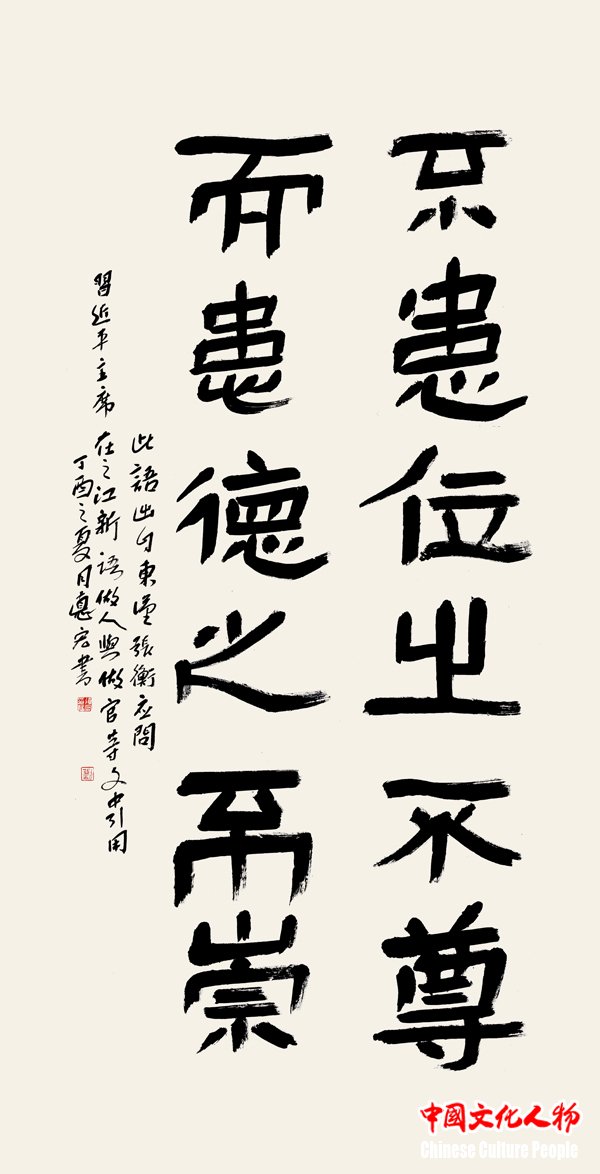 不患位之不尊
而患德之不崇
此語出自東漢張衡应問
習近平主席在之江新語做人與做官等文中引用
丁酉之夏月惠宏書
中國文化人物
Chinese Culture People